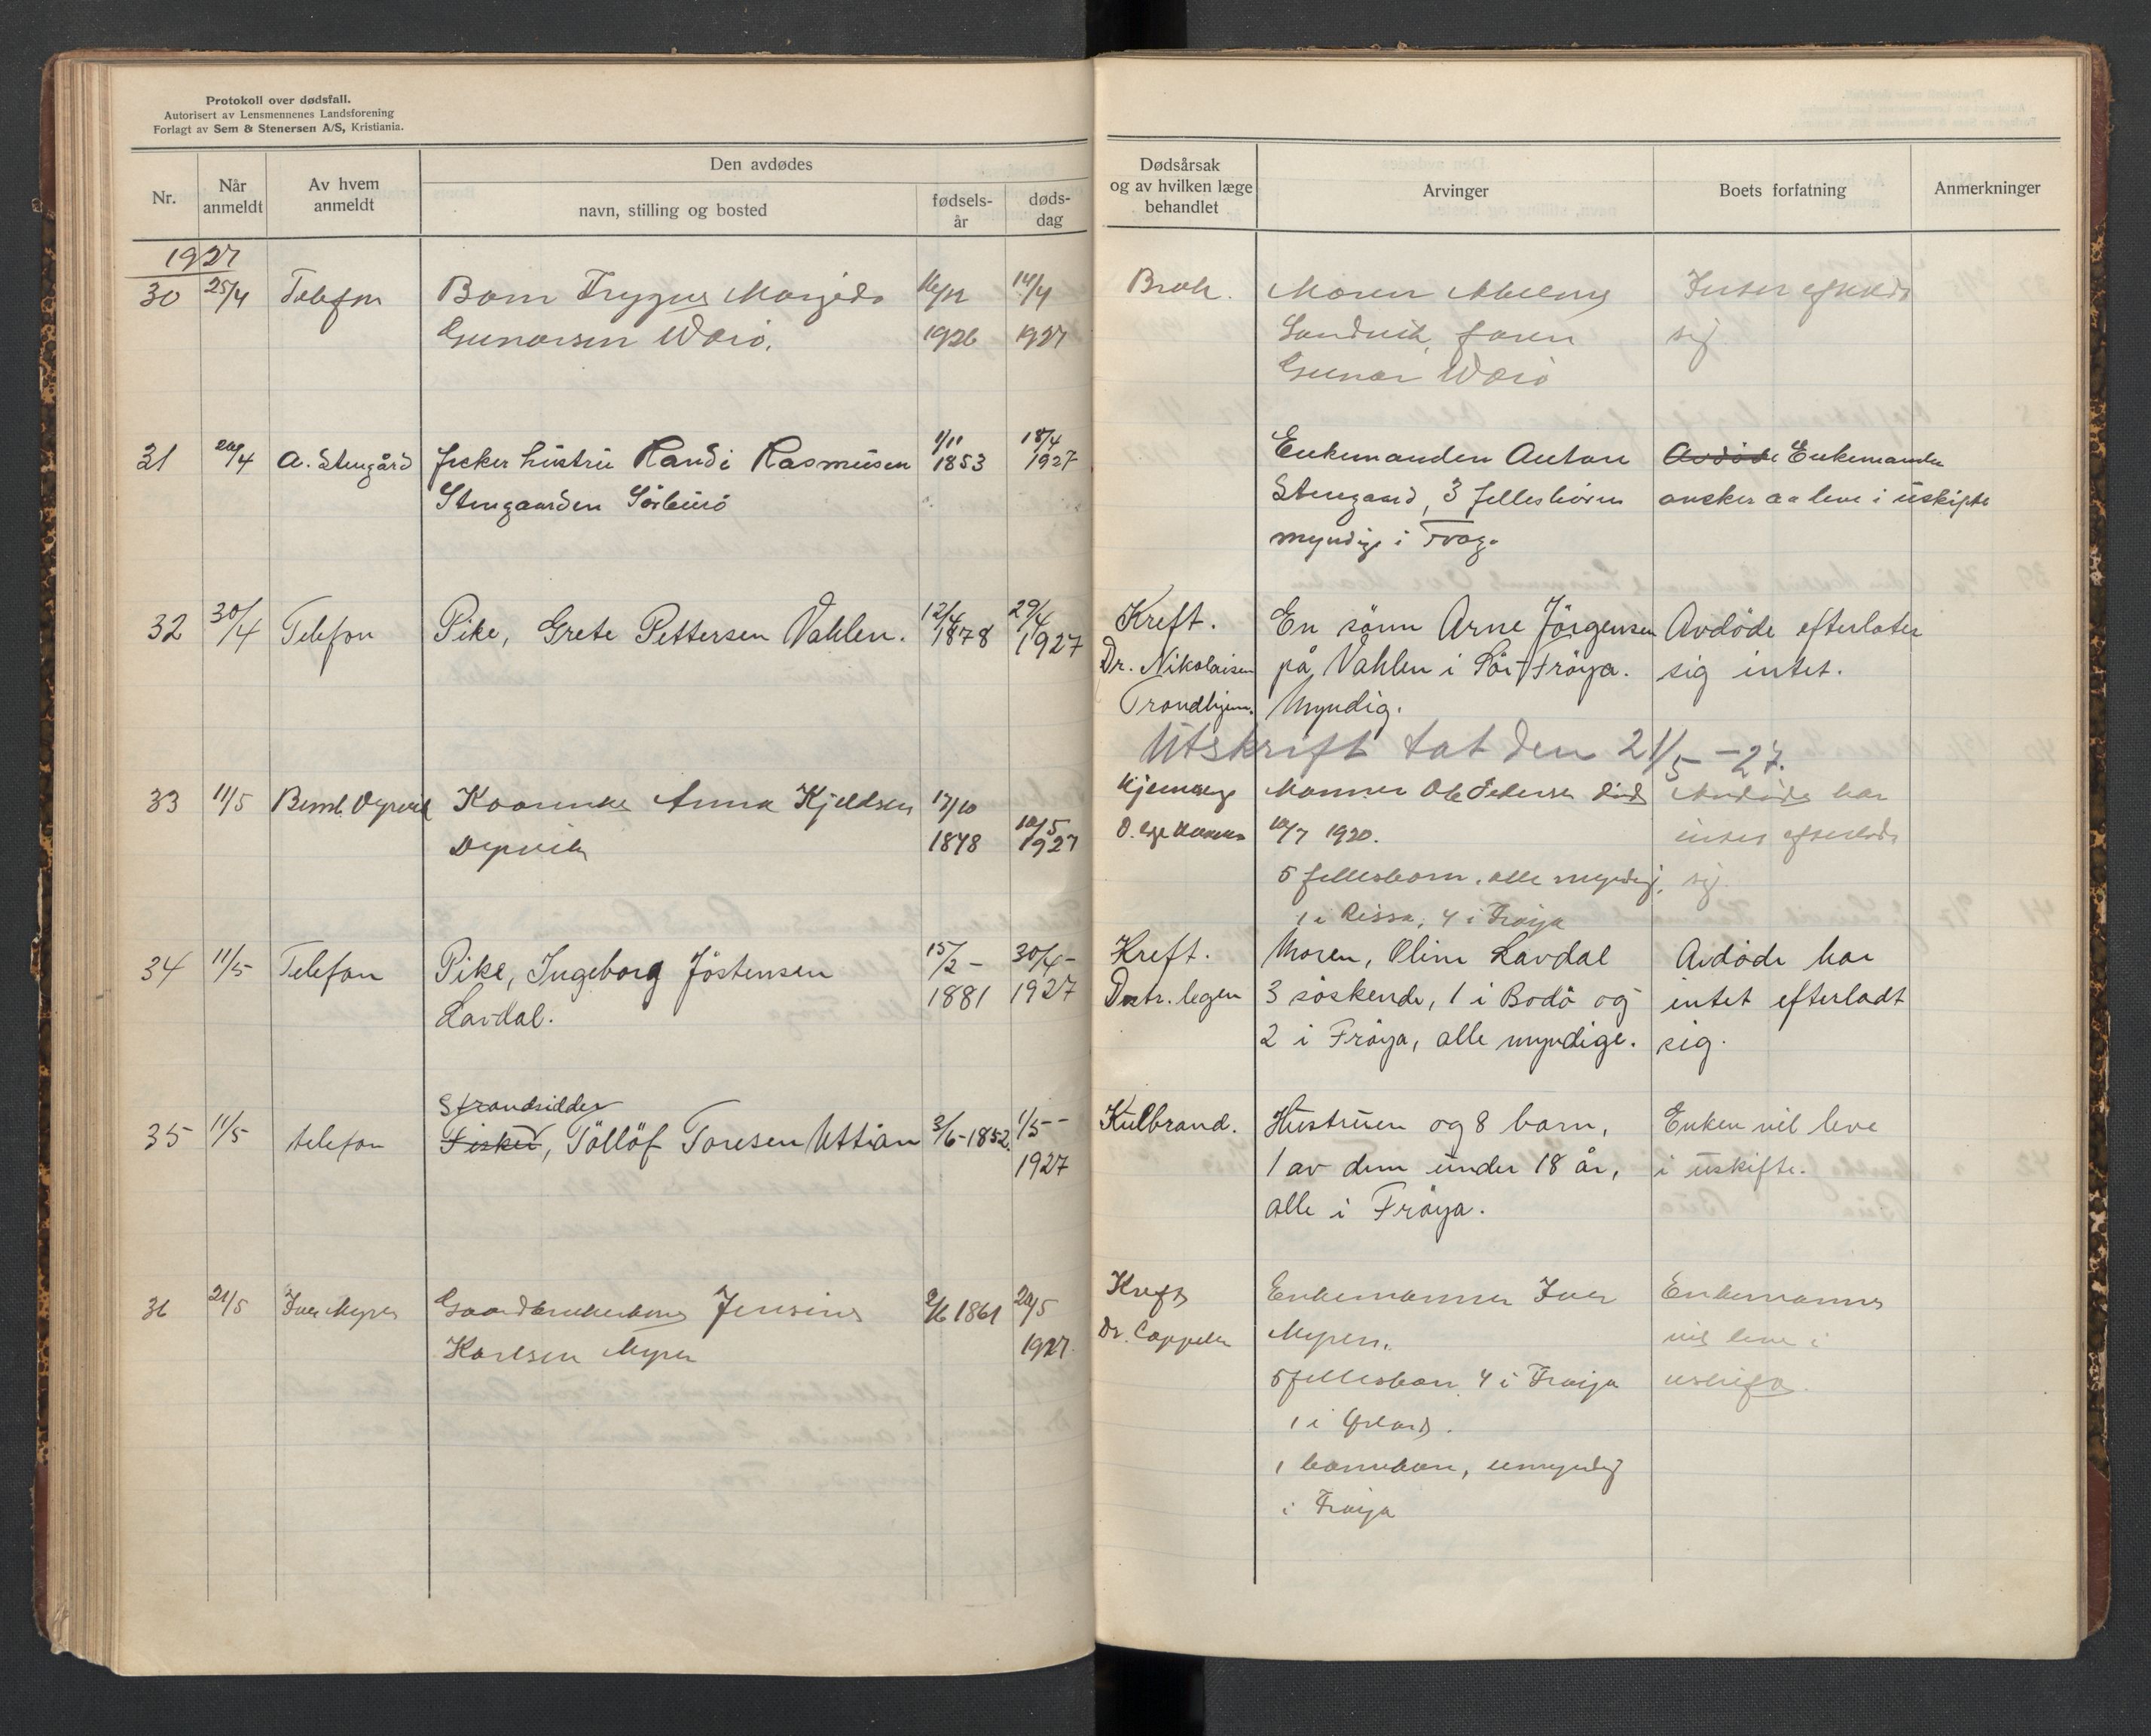 Protokoll over dødsfall.
Autorisert av Lensmennenes Landsforening
Forlagt av Sem & Stenersen A/S, Kristiania.
Nr.
Når
anmeldt
Av hvem
anmeldt
Den avdødes
navn, stilling og bosted
fødsels-
år
døds-
dag
Dødsårsak
og av hvilken læge
behandlet
Arvinger
Boets forfatning
Anmerkninger
1927
30 25/4 Telefon Barn Trygve
Gunarsen
1926 1927
Moren
Sandvik, faren
Gunar
Intet
sig
31 A. Stengård hustru Randi Rasmusen 1/11 1853 18/4 1927
Stengaarden
Enkemanden Anton
Stengaard, 3 fellesbörn
myndige i
Avdøde Enkemanden
ønsker aa leve i uskifte
32 30/4 Telefon Pike, Grete Pettersen Vahlen. 12/4 1878 29/4 1927
Kreft.
Dr. Nikolaisen
Trondhjem.
En sönn Arne Jörgensen
på Vahlen i Sör-Fröya.
Myndig.
Avdöde efterlater
sig intet.
Utskrift tat den 21/5 -27.
33 11/5 Anna Kjeldsen 17/10
Dyrvik 1878 10/5 1927
Mannen Ole Pedersen död
10/7 1920.
5 fellesbarn, alle myndig,
1 i Rissa, 4 i Fröya
Avdöde har
intet efterladt
sig.
34 11/5 Telefon Pike, Ingeborg Jöstensen 15/2 - 30/4 -
Lavdal. 1881 1927
Kreft.
Dstr. legen
Moren, Oline Lavdal
3 söskende, 1 i Bodö og
2 i Fröya, alle myndige.
Avdöde har
intet efterladt
sig.
Strandsidder
35 11/5 telefon Fisker, Töllöf Toresen Uttian 3/6-1852. 1/5 -
1927
Kulbrand.
Hustruen og 8 barn,
1 av dem under 18 år,
alle i Fröya.
Enken vil leve
i uskifte.
36 21/5 Iver Myren Jensine 1861 20/5
Karlsen Myren 1927.
Kreft
Dr. Cappelen
Enkemannen Iver
Myren.
5 fellesbarn 4 i Fröya
1 i
1 barnebarn, umyndig
i Fröya
Enkemannen
vil leve i
uskifte.